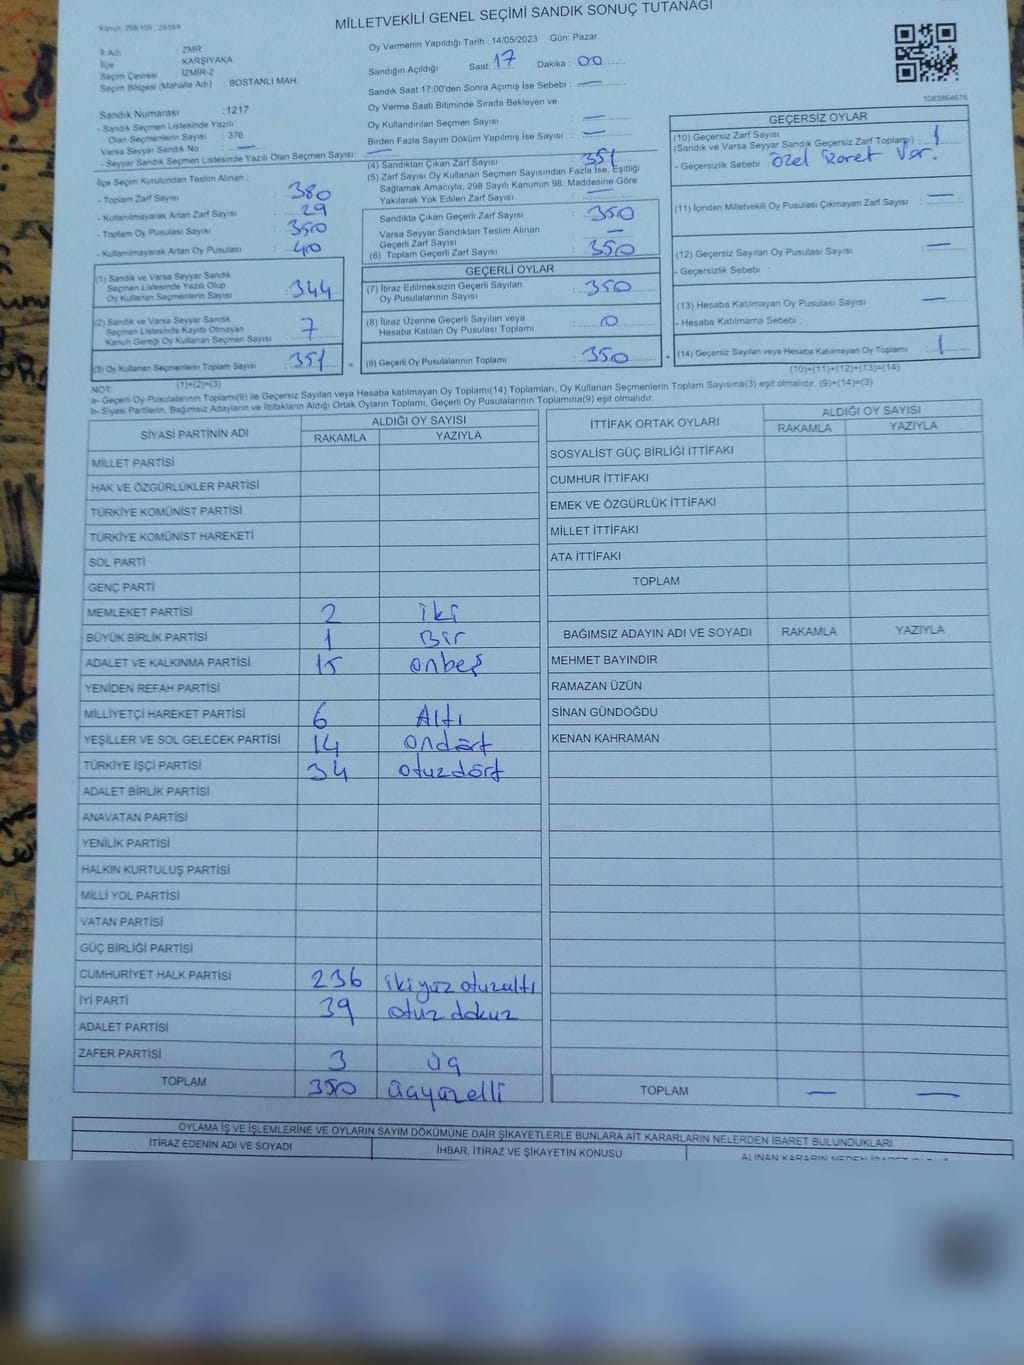 Kanun: 298/105
MİLLETVEKİLİ GENEL SEÇİMİ SANDIK SONUÇ TUTANAĞI
İl Adı : İZMİR
İlçe : KARŞIYAKA
Seçim Çevresi : İZMİR-2
Seçim Bölgesi (Mahalle Adı) : BOSTANLI MAH.
Sandık Numarası : 1217
- Sandık Seçmen Listesinde Yazılı
Olan Seçmenlerin Sayısı : 376
Varsa Seyyar Sandık No : —
- Seyyar Sandık Seçmen Listesinde Yazılı Olan Seçmen Sayısı: —
Oy Vermenin Yapıldığı Tarih : 14/05/2023 Gün: Pazar
Sandığın Açıldığı Saat: 17 Dakika : 00
Sandık Saat 17:00'den Sonra Açımış İse Sebebi : —
Oy Verme Saati Bitiminde Sırada Bekleyen ve
Oy Kullandırılan Seçmen Sayısı : —
Birden Fazla Sayım Döküm Yapılmış İse Sayısı : —
1083864676
İlçe Seçim Kurulundan Teslim Alınan ;
- Toplam Zarf Sayısı : 380
- Kullanılmayarak Artan Zarf Sayısı : 29
- Toplam Oy Pusulası Sayısı : 350
- Kullanılmayarak Artan Oy Pusulası : 40
(1) Sandık ve Varsa Seyyar Sandık
Seçmen Listesinde Yazılı Olup
Oy Kullanan Seçmenlerin Sayısı : 344
(2) Sandık ve Varsa Seyyar Sandık
Seçmen Listesinde Kayıtlı Olmayan
Kanun Gereği Oy Kullanan Seçmen Sayısı : 7
(3) Oy Kullanan Seçmenlerin Toplam Sayısı : 351
(1)+(2)=(3)
(4) Sandıktan Çıkan Zarf Sayısı : 351
(5) Zarf Sayısı Oy Kullanan Seçmen Sayısından Fazla İse, Eşitliği
Sağlamak Amacıyla, 298 Sayılı Kanunun 98. Maddesine Göre
Yakılarak Yok Edilen Zarf Sayısı : —
Sandıkta Çıkan Geçerli Zarf Sayısı : 350
Varsa Seyyar Sandıktan Teslim Alınan
Geçerli Zarf Sayısı : —
(6) Toplam Geçerli Zarf Sayısı : 350
GEÇERLİ OYLAR
(7) İtiraz Edilmeksizin Geçerli Sayılan
Oy Pusulalarının Sayısı : 350
(8) İtiraz Üzerine Geçerli Sayılan veya
Hesaba Katılan Oy Pusulası Toplamı : 0
= (9) Geçerli Oy Pusulalarının Toplamı : 350
GEÇERSİZ OYLAR
(10) Geçersiz Zarf Sayısı
(Sandık ve Varsa Seyyar Sandık Geçersiz Zarf Toplamı) : 1
- Geçersizlik Sebebi : Özel İşaret Var.
(11) İçinden Milletvekili Oy Pusulası Çıkmayan Zarf Sayısı : —
(12) Geçersiz Sayılan Oy Pusulası Sayısı : —
- Geçersizlik Sebebi :
(13) Hesaba Katılmayan Oy Pusulası Sayısı : —
- Hesaba Katılmama Sebebi :
+ (14) Geçersiz Sayılan veya Hesaba Katılmayan Oy Toplamı : 1
(10)+(11)+(12)+(13)=(14)
NOT:
a- Geçerli Oy Pusulalarının Toplamı(9) ile Geçersiz Sayılan veya Hesaba katılmayan Oy Toplamı(14) Toplamları, Oy Kullanan Seçmenlerin Toplam Sayısına(3) eşit olmalıdır. (9)+(14)=(3)
b- Siyasi Partilerin, Bağımsız Adayların ve İttifakların Aldığı Ortak Oyların Toplamı, Geçerli Oy Pusulalarının Toplamına(9) eşit olmalıdır.
SİYASİ PARTİNİN ADI ALDIĞI OY SAYISI
RAKAMLA YAZIYLA
MİLLET PARTİSİ
HAK VE ÖZGÜRLÜKLER PARTİSİ
TÜRKİYE KOMÜNİST PARTİSİ
TÜRKİYE KOMÜNİST HAREKETİ
SOL PARTİ
GENÇ PARTİ
MEMLEKET PARTİSİ 2 iki
BÜYÜK BİRLİK PARTİSİ 1 Bir
ADALET VE KALKINMA PARTİSİ 15 onbeş
YENİDEN REFAH PARTİSİ
MİLLİYETÇİ HAREKET PARTİSİ 6 Altı
YEŞİLLER VE SOL GELECEK PARTİSİ 14 ondört
TÜRKİYE İŞÇİ PARTİSİ 34 otuzdört
ADALET BİRLİK PARTİSİ
ANAVATAN PARTİSİ
YENİLİK PARTİSİ
HALKIN KURTULUŞ PARTİSİ
MİLLİ YOL PARTİSİ
VATAN PARTİSİ
GÜÇ BİRLİĞİ PARTİSİ
CUMHURİYET HALK PARTİSİ 236 ikiyüz otuzaltı
İYİ PARTİ 39 otuz dokuz
ADALET PARTİSİ
ZAFER PARTİSİ 3 üç
TOPLAM 350 üçyüzelli
İTTİFAK ORTAK OYLARI ALDIĞI OY SAYISI
RAKAMLA YAZIYLA
SOSYALİST GÜÇ BİRLİĞİ İTTİFAKI
CUMHUR İTTİFAKI
EMEK VE ÖZGÜRLÜK İTTİFAKI
MİLLET İTTİFAKI
ATA İTTİFAKI
TOPLAM
BAĞIMSIZ ADAYIN ADI VE SOYADI RAKAMLA YAZIYLA
MEHMET BAYINDIR
RAMAZAN ÜZÜN
SİNAN GÜNDOĞDU
KENAN KAHRAMAN
TOPLAM — —
OYLAMA İŞ VE İŞLEMLERİNE VE OYLARIN SAYIM DÖKÜMÜNE DAİR ŞİKAYETLERLE BUNLARA AİT KARARLARIN NELERDEN İBARET BULUNDUKLARI
İTİRAZ EDENİN ADI VE SOYADI İHBAR, İTİRAZ VE ŞİKAYETİN KONUSU